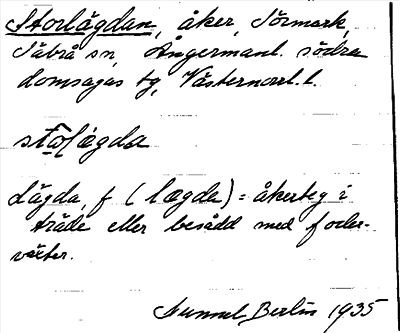 Storlägdan, åker, Törmark,
Säbrå sn, Ångermanl. södra
domsagas tg, Västernorrl. l.
Lägda, f (lægda) = åkerteg i
träde eller besådd med foder-
växter.
Gunnel Berlin 1935